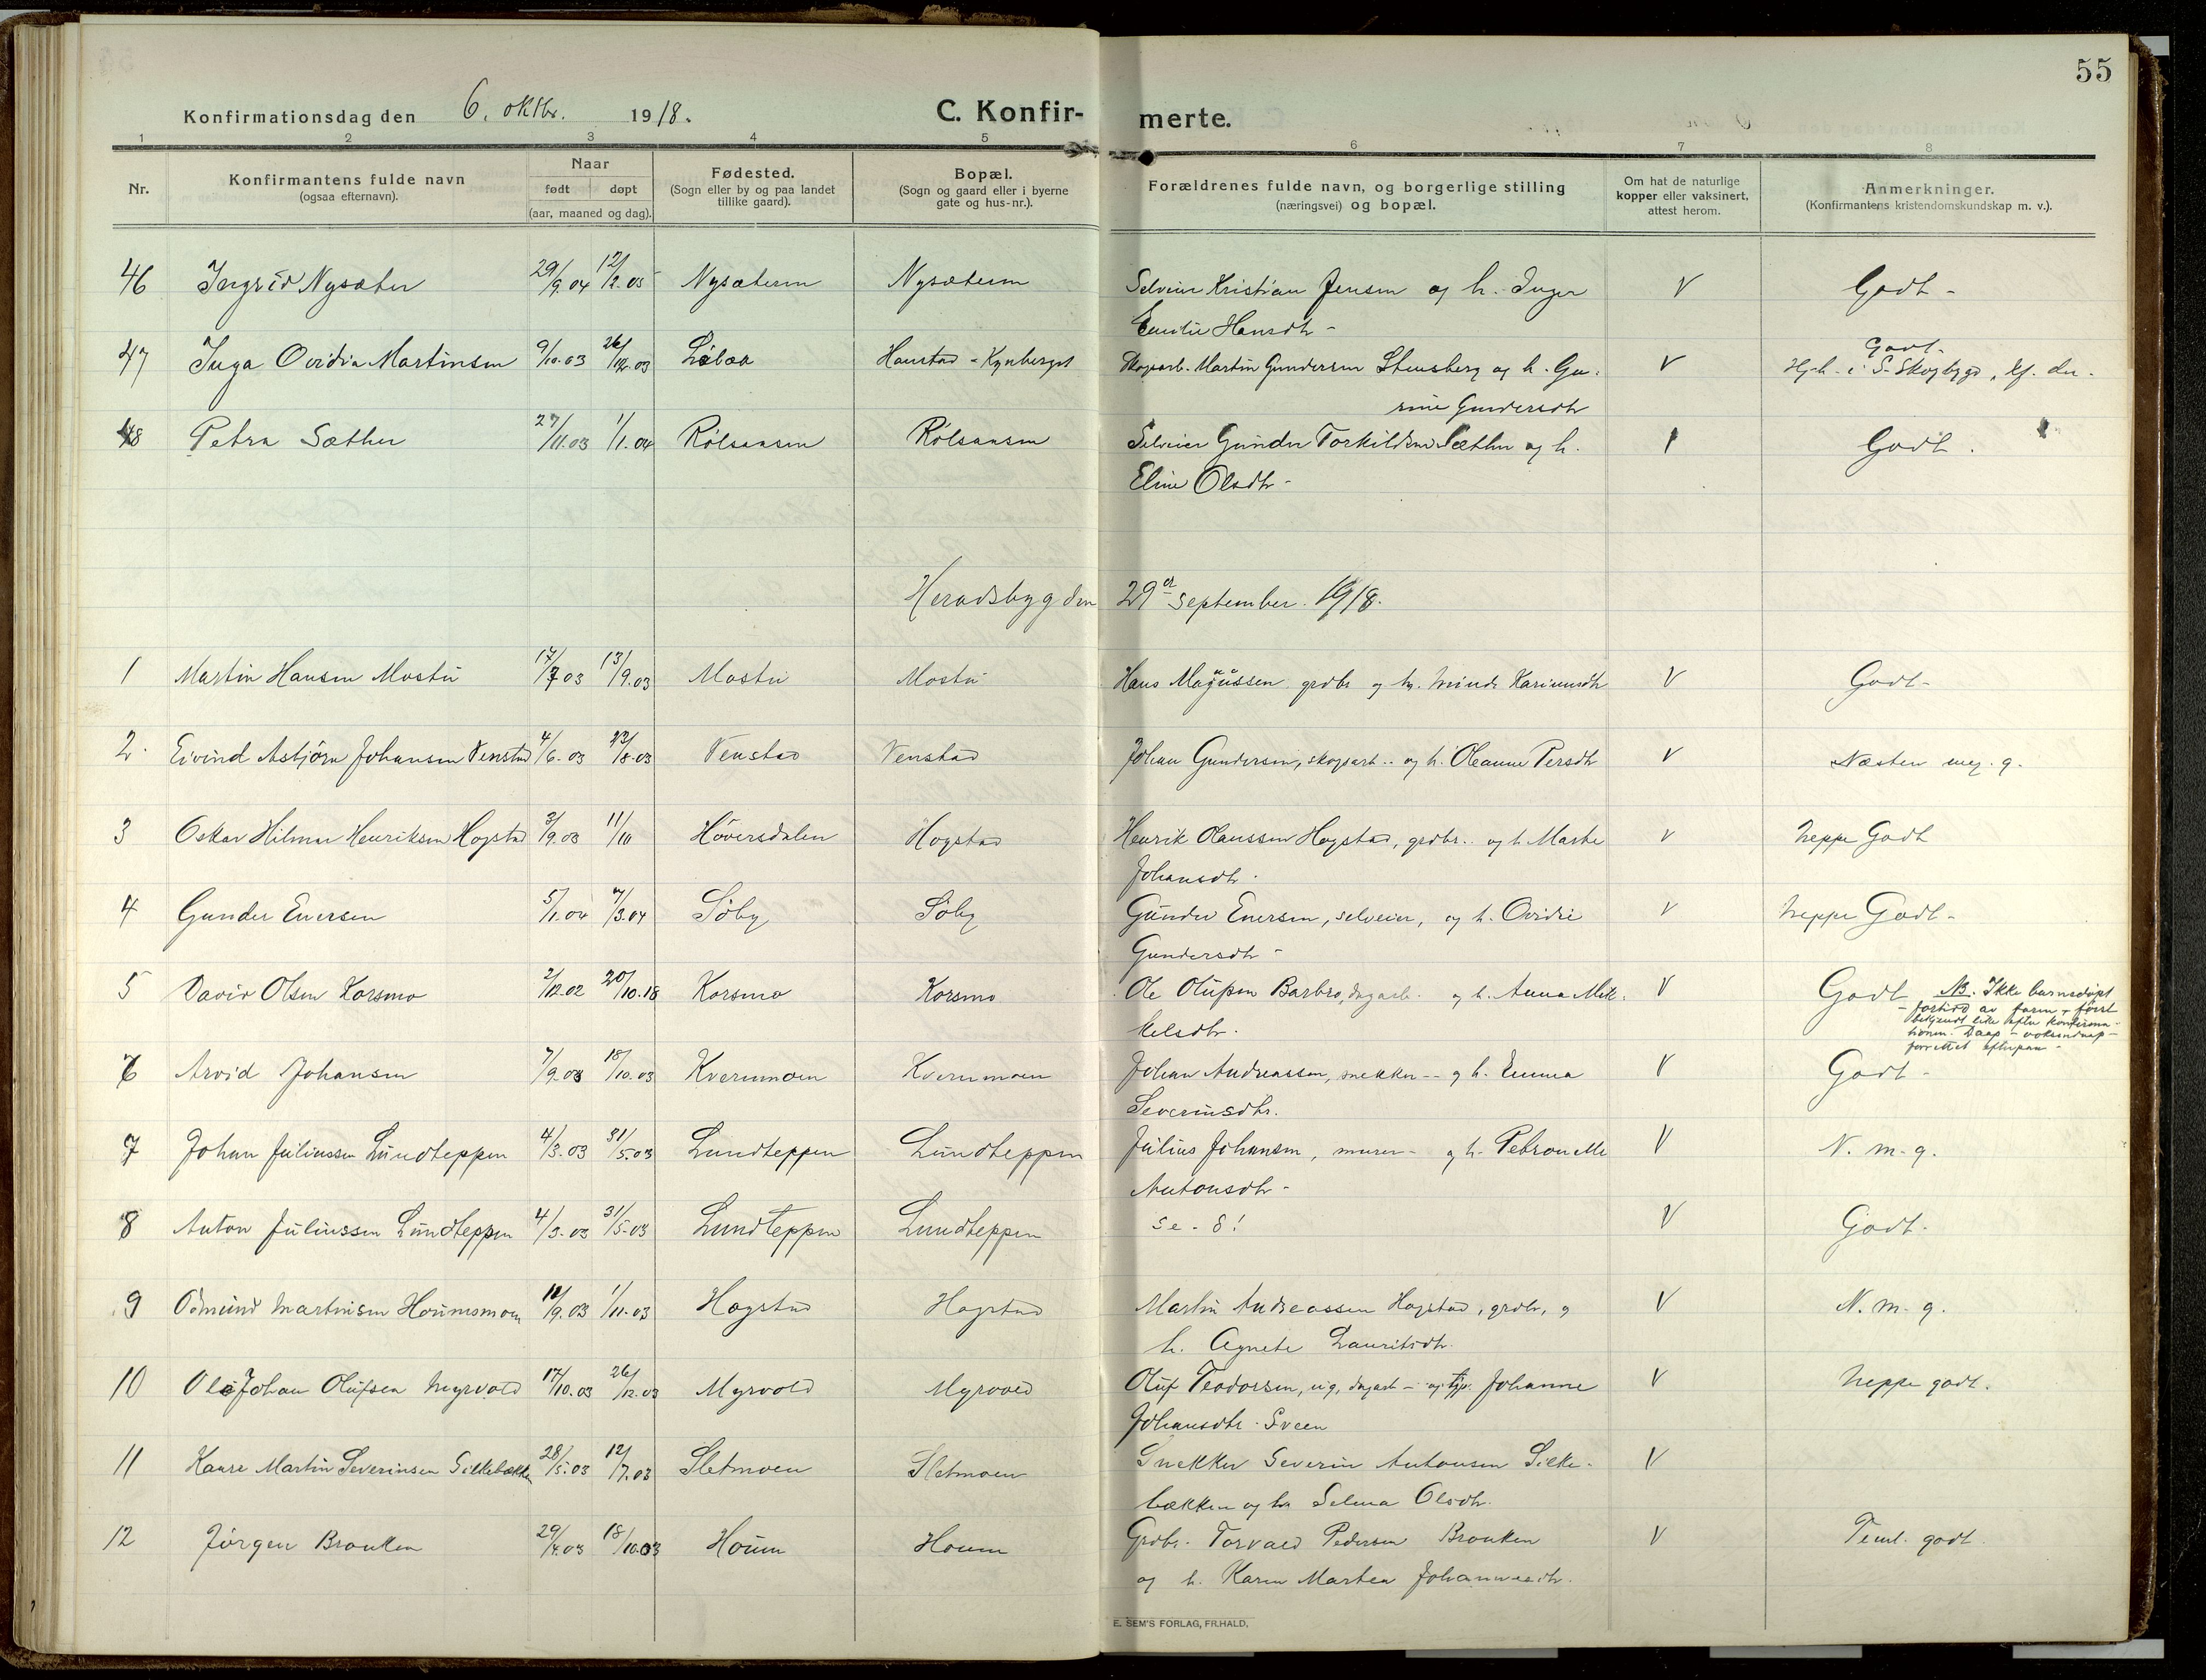 55
Konfirmationsdag den 6. oktbr. 1918.
C. Konfirmerte.
1 2 3 4 5 6 7 8
Nr.
Konfirmantens fulde navn
(ogsaa efternavn).
Naar
født døpt
(aar, maaned og dag).
Fødested.
(Sogn eller by og paa landet
tillike gaard).
Bopæl.
(Sogn og gaard eller i byerne
gate og hus-nr.).
Forældrenes fulde navn, og borgerlige stilling
(næringsvei) og bopæl.
Om hat de naturlige
kopper eller vaksinert,
attest herom.
Anmerkninger.
(Konfirmantens kristendomskundskap m. v.).
46 Ingrid Nysæter 29/9.04 12/2.05 Nysæteren Nysæteren Selveier Kristian Jensen og h. Inger V Godt -
Emilie Hansdtr -
47 Inga Ovidia Martinsen 9/10.03 26/12.03 Haustad - Kynberget Skogarb. Martin Gundersen Stensberg og h. Gu- V Godt -
rine Gundersdtr
48 Petra Sæther 27/11.03 1/1.04 Rölsaasen Rölsaasen Selveier Gunder Torkildsen Sæther og h. Godt.
Eline Olsdtr -
Heradsbygden 29de september 1918.
1 Martin Hansen Mostu 17/7 03 13/9.03 Mostu Mostu Hans Magnussen grdbr og h. V Godt -
2. Eivind Asbjörn Johansen Venstad 4/6.03 /8.03 Venstad Venstad Johan Gundersen, skogsarb. og h. Oleanne Persdtr V Næsten meg. g.
3 Oskar Hilmar Henriksen Hogstad 3/9.03 11/10 Höversdalen Hogstad Henrik Olaussen Hogstad, grdbr. og h. Marte V Neppe Godt
Johansdtr.
4 Gunder Enersen 5/1.04 /3.04 Söby Söby Gunder Enersen, selveier, og h. Ovidie V Neppe Godt -
Gundersdtr -
5 David Olsen Korsmo 2/12.02 20/10.18 Korsmo Korsmo Ole Olufsen Barbro, dagarb. og h. Anna Mik- V Godt NB. Ikke barnedöpt
kelsdtr.
- fortidd av farm + först
bekjendt like efter konfirma-
tionen. Daap - voksendaap -
forrettet efterpaa -
6 Arvid Johansen 7/9.03 18/10.03 Kvernmoen Kvernmoen Johan Andreassen, snekker - og h. Emma V Godt -
Severinsdtr.
7 Johan Juliussen Lundteppen 4/3.03 31/5.03 Lundteppen Lundteppen Julius Johansen, murer - og h. Petronelle V N. m. g.
Antonsdtr -
8 Anton Juliussen Lundteppen 4/3.03 31/5.03 Lundteppen Lundteppen se - 8! V Godt.
9 Odmund Martinsen Houmsmoen /9.03 1/11.03 Hogstad Hogstad Martin Andreassen Hogstad, grdbr, og V N. m. g.
h. Agnete Lauritsdtr.
10 Ole Johan Olufsen Myrvold 17/10.03 26/12.03 Myrvold Myrvold Oluf Teodorsen, ug. dagarb - og Johanne V Neppe godt.
Johansdtr. Sveen
11 Kaare Martin Severinsen Silkebækken 28/5.03 12/7.03 Sletmoen Sletmoen Snekker Severin Antonsen Silke- V
bækken og h. Selma Olsdtr.
12 Jörgen Brauten 29/4.03 18/10.03 Houm Houm Grdbr. Torvald Pedersen Brauten V Teml. godt
og h. Karen Martea Johannesdtr.
E. SEM'S FORLAG, FR.HALD.